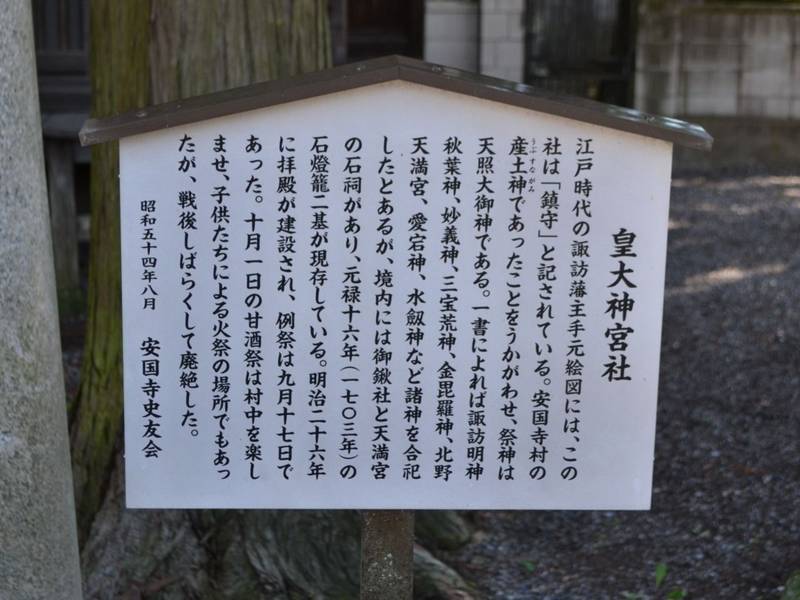 皇大神宮社
江戸時代の諏訪藩主手元絵図には、この
社は「鎮守」と記されている。安国寺村の
産土神であったことをうかがわせ、祭神は
うぶすながみ
天照大御神である。一書によれば諏訪明神
秋葉神、妙義神、三宝荒神、金毘羅神、北野
天満宮、愛宕神、水劔神など諸神を合祀
したとあるが、境内には御鍬社と天満宮
の石祠があり、元禄十六年（一七〇三年）の
石燈籠二基が現存している。明治二十六年
に拝殿が建設され、例祭は九月十七日で
あった。十月一日の甘酒祭は村中を楽し
ませ、子供たちによる火祭の場所でもあっ
たが、戦後しばらくして廃絶した。
昭和五十四年八月　安国寺史友会